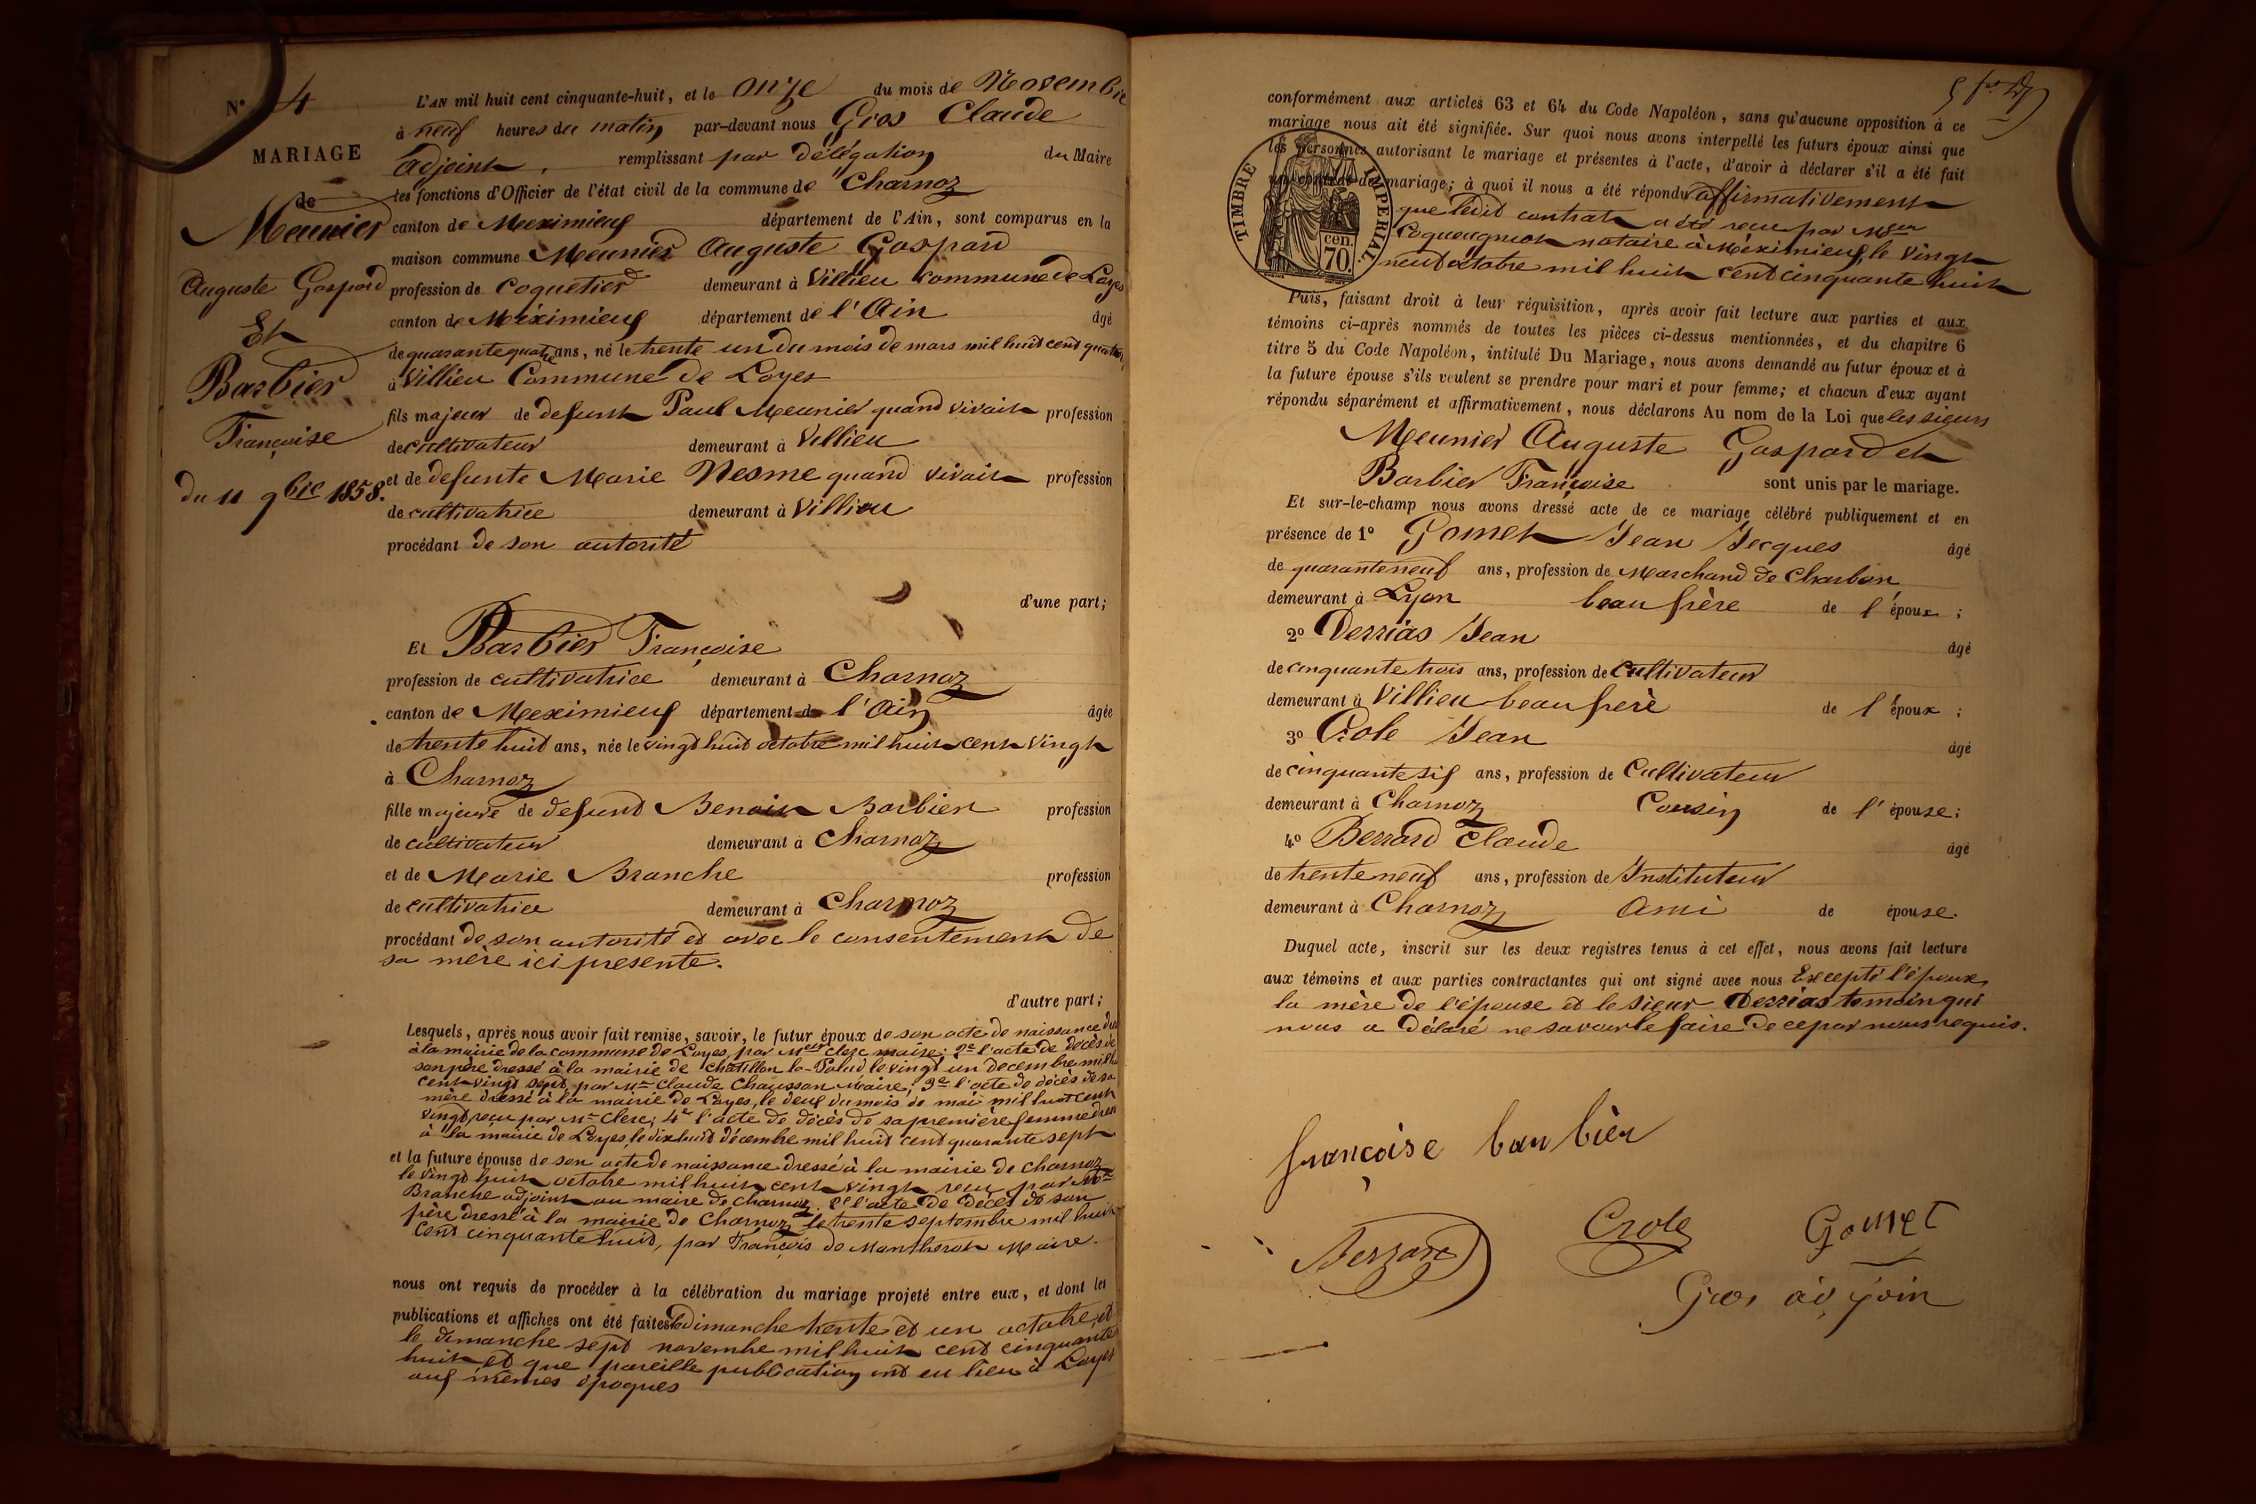 N° 4
MARIAGE
de
Meunier
Auguste Gaspard
Et
Barbier
Françoise
du 11 9bre 1858.
L'AN mil huit cent cinquante-huit, et le onze du mois de Novembre
à neuf heures du matin par-devant nous Gros Claude
adjoint, remplissant par délégation du Maire
les fonctions d'Officier de l'état civil de la commune de Charnoz
canton de Meximieux département de l'Ain, sont comparus en la
maison commune Meunier Auguste Gaspard
profession de Coquetier demeurant à Villieu Commune de Loyes
canton de Meximieux département de l'Ain âgé
de quarante quatre ans, né le trente un du mois de mars mil huit cent quatorze
à Villieu Commune de Loyes
fils majeur de defunt Paul Meunier quand vivait profession
de cultivateur demeurant à Villieu
et de defunte Marie Nesme quand vivait profession
de cultivatrice demeurant à Villieu
procédant de son autorité
d'une part;
Et Barbier Françoise
profession de cultivatrice demeurant à Charnoz
canton de Meximieux département de l'Ain âgée
de trente huit ans, née le vingt huit octobre mil huit cent vingt
à Charnoz
fille majeure de defunt Benoit Barbier profession
de cultivateur demeurant à Charnoz
et de Marie Branche profession
de cultivatrice demeurant à Charnoz
procédant de son autorité et avec le consentement de
sa mère ici presente.
d'autre part;
Lesquels, après nous avoir fait remise, savoir, le futur époux de son acte de naissance
à la mairie de la commune de Loyes, par Mr Clerc maire; 2e l'acte de décès de
son père dressé à la mairie de Chatillon la-Palud le vingt un decembre mil
cent vingt sept, par Mr Claude Chausson Maire; 3e l'acte de décès de sa
mère dressé à la mairie de Loyes, le deux du mois de mai mil huit cent
vingt reçu par Mr Clerc; 4e l'acte de décès de sa première femme
à la mairie de Loyes, le dix huit décembre mil huit cent quarante sept
et la future épouse de son acte de naissance dressé à la mairie de Charnoz
le vingt huit octobre mil huit cent vingt reçu par Mr
Branche adjoint au maire de Charnoz. 2e l'acte de décès de son
père dressé à la mairie de Charnoz le trente septembre mil huit
cent cinquante huit, par François de Montherot Maire.
nous ont requis de procéder à la célébration du mariage projeté entre eux, et dont les
publications et affiches ont été faites le dimanche trente et un octobre, et
le dimanche sept novembre mil huit cent cinquante
huit et que pareille publication ont eu lieu à Loyes
aux mêmes époques
conformément aux articles 63 et 64 du Code Napoléon, sans qu'aucune opposition à ce
mariage nous ait été signifiée. Sur quoi nous avons interpellé les futurs époux ainsi que
les personnes autorisant le mariage et présentes à l'acte, d'avoir à déclarer s'il a été fait
un contrat de mariage; à quoi il nous a été répondu affirmativement
que ledit contrat a été reçu par
Coqueugniot notaire à Méximieux, le vingt
neuf octobre mil huit cent cinquante huit
TIMBRE IMPERIAL.
70 cen.
Puis, faisant droit à leur réquisition, après avoir fait lecture aux parties et aux
témoins ci-après nommés de toutes les pièces ci-dessus mentionnées, et du chapitre 6
titre 5 du Code Napoléon, intitulé Du Mariage, nous avons demandé au futur époux et à
la future épouse s'ils veulent se prendre pour mari et pour femme; et chacun d'eux ayant
répondu séparément et affirmativement, nous déclarons Au nom de la Loi que les sieurs
Meunier Auguste Gaspard et
Barbier Françoise sont unis par le mariage.
Et sur-le-champ nous avons dressé acte de ce mariage célébré publiquement et en
présence de 1° Gomet Jean Jacques âgé
de quarante neuf ans, profession de Marchand de Charbon
demeurant à Lyon beau frère de l'époux;
2° Derrias Jean âgé
de cinquante trois ans, profession de Cultivateur
demeurant à Villieu beau frère de l'époux;
3° Crole Jean âgé
de cinquante six ans, profession de Cultivateur
demeurant à Charnoz Cousin de l'épouse;
4° Berrard Claude âgé
de trente neuf ans, profession de Instituteur
demeurant à Charnoz Ami de épouse.
Duquel acte, inscrit sur les deux registres tenus à cet effet, nous avons fait lecture
aux témoins et aux parties contractantes qui ont signé avec nous Excepté l'époux
la mère de l'épouse et le sieur Derrias temoin qui
nous a déclaré ne savoir le faire de ce par nous requis.
françoise barbier
Berrard Crole Gomet
Gros adjoin